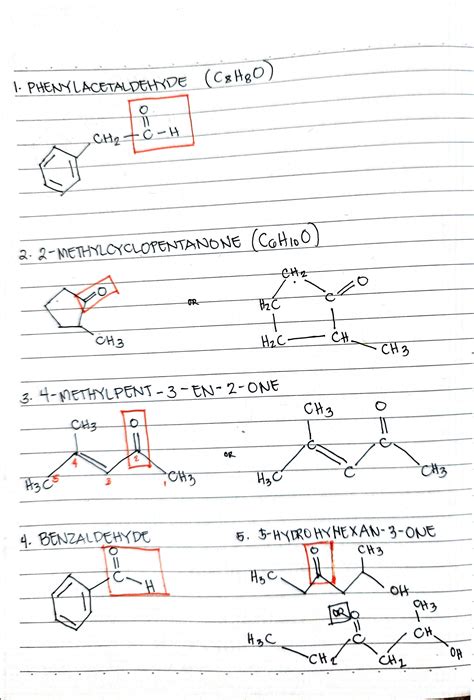 1. PHENYLACETALDEHYDE (C8H8O)
O
CH2 - C - H
2. 2-METHYLCYCLOPENTANONE (C6H10O)
O
CH3
OR
CH2
H2C
C
O
H2C
CH
CH3
3. 4-METHYLPENT-3-EN-2-ONE
CH3
O
H3C
5
4
3
2
1
CH3
OR
CH3
O
C
C
H3C
C
CH3
4. BENZALDEHYDE
O
C
H
5. 5-HYDROHYHEXAN-3-ONE
O
CH3
H3C
OH
OR
O
CH3
H3C
C
CH
CH2
CH2
OH